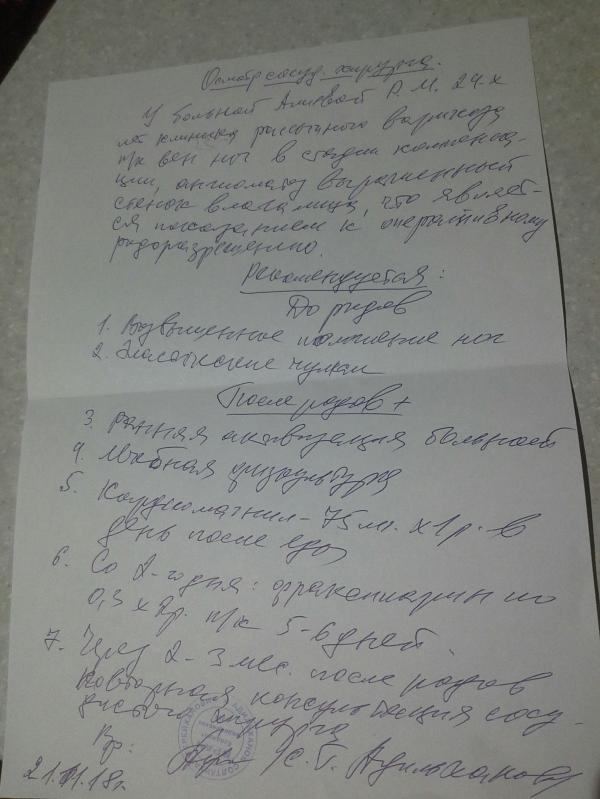 Осмотр сосуд. хирурга.
У больной Алиевой Р. М. 24-х
лет клиника рассыпного варикоза
п/к вен ног в стадии компенса-
ции, ангиоматоз выраженный
стенок влагалища, что являет-
ся показанием к оперативному
родоразрешению.
Рекомендуется:
До родов
1. Возвышенное положение ног
2. Эластические чулки
После родов +
3. Ранняя активизация больной
4. Лечебная физкультура
5. Кардиомагнил - 75 мг. х 1 р. в
день после еды
6. Со 2-го дня: фраксипарин по
0,3 х 2р. п/к 5-6 дней.
7. Через 2-3 мес. после родов
повторная консультация сосу-
дистого хирурга
Вр:
21.11.18г.